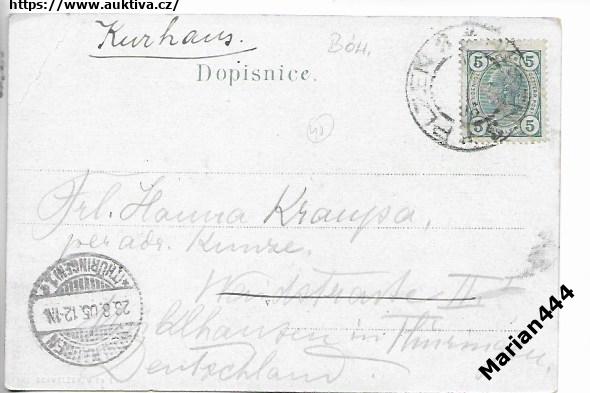 https://www.auktiva.cz/
Kurhaus.
Böh.
Dopisnice.
PLZEN
5 5
5 5
Frl. Hanna Kraupa,
per adr. Kunze.
Waldstrasse II
in Thüringen,
Deutschland.
(THÜRINGEN)
23.8.05.12-1N.
Marian444